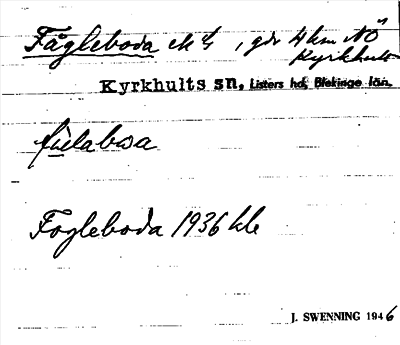 Fågleboda ek ¼, gdr 4 km NÖ
Kyrkhult
Kyrkhults sn, Listers hd, Blekinge län.
fu̇labwa
Fogleboda 1936 kle
J. SWENNING 1946